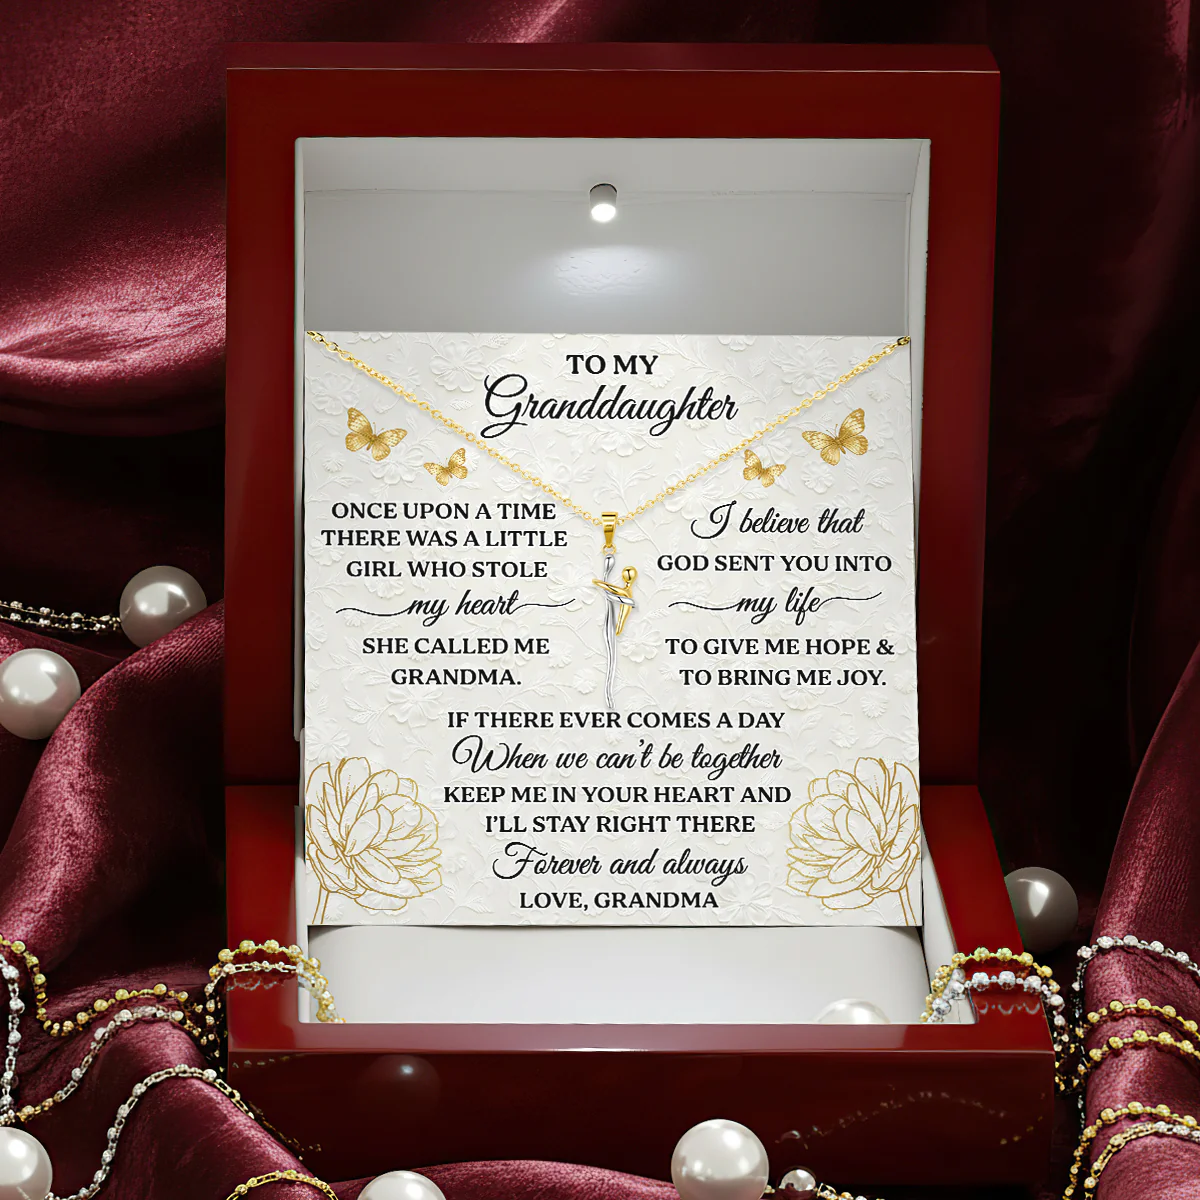 TO MY
Granddaughter
ONCE UPON A TIME
THERE WAS A LITTLE
GIRL WHO STOLE
my heart
SHE CALLED ME
GRANDMA.
I believe that
GOD SENT YOU INTO
my life
TO GIVE ME HOPE &
TO BRING ME JOY.
IF THERE EVER COMES A DAY
When we can't be together
KEEP ME IN YOUR HEART AND
I'LL STAY RIGHT THERE
Forever and always
LOVE, GRANDMA